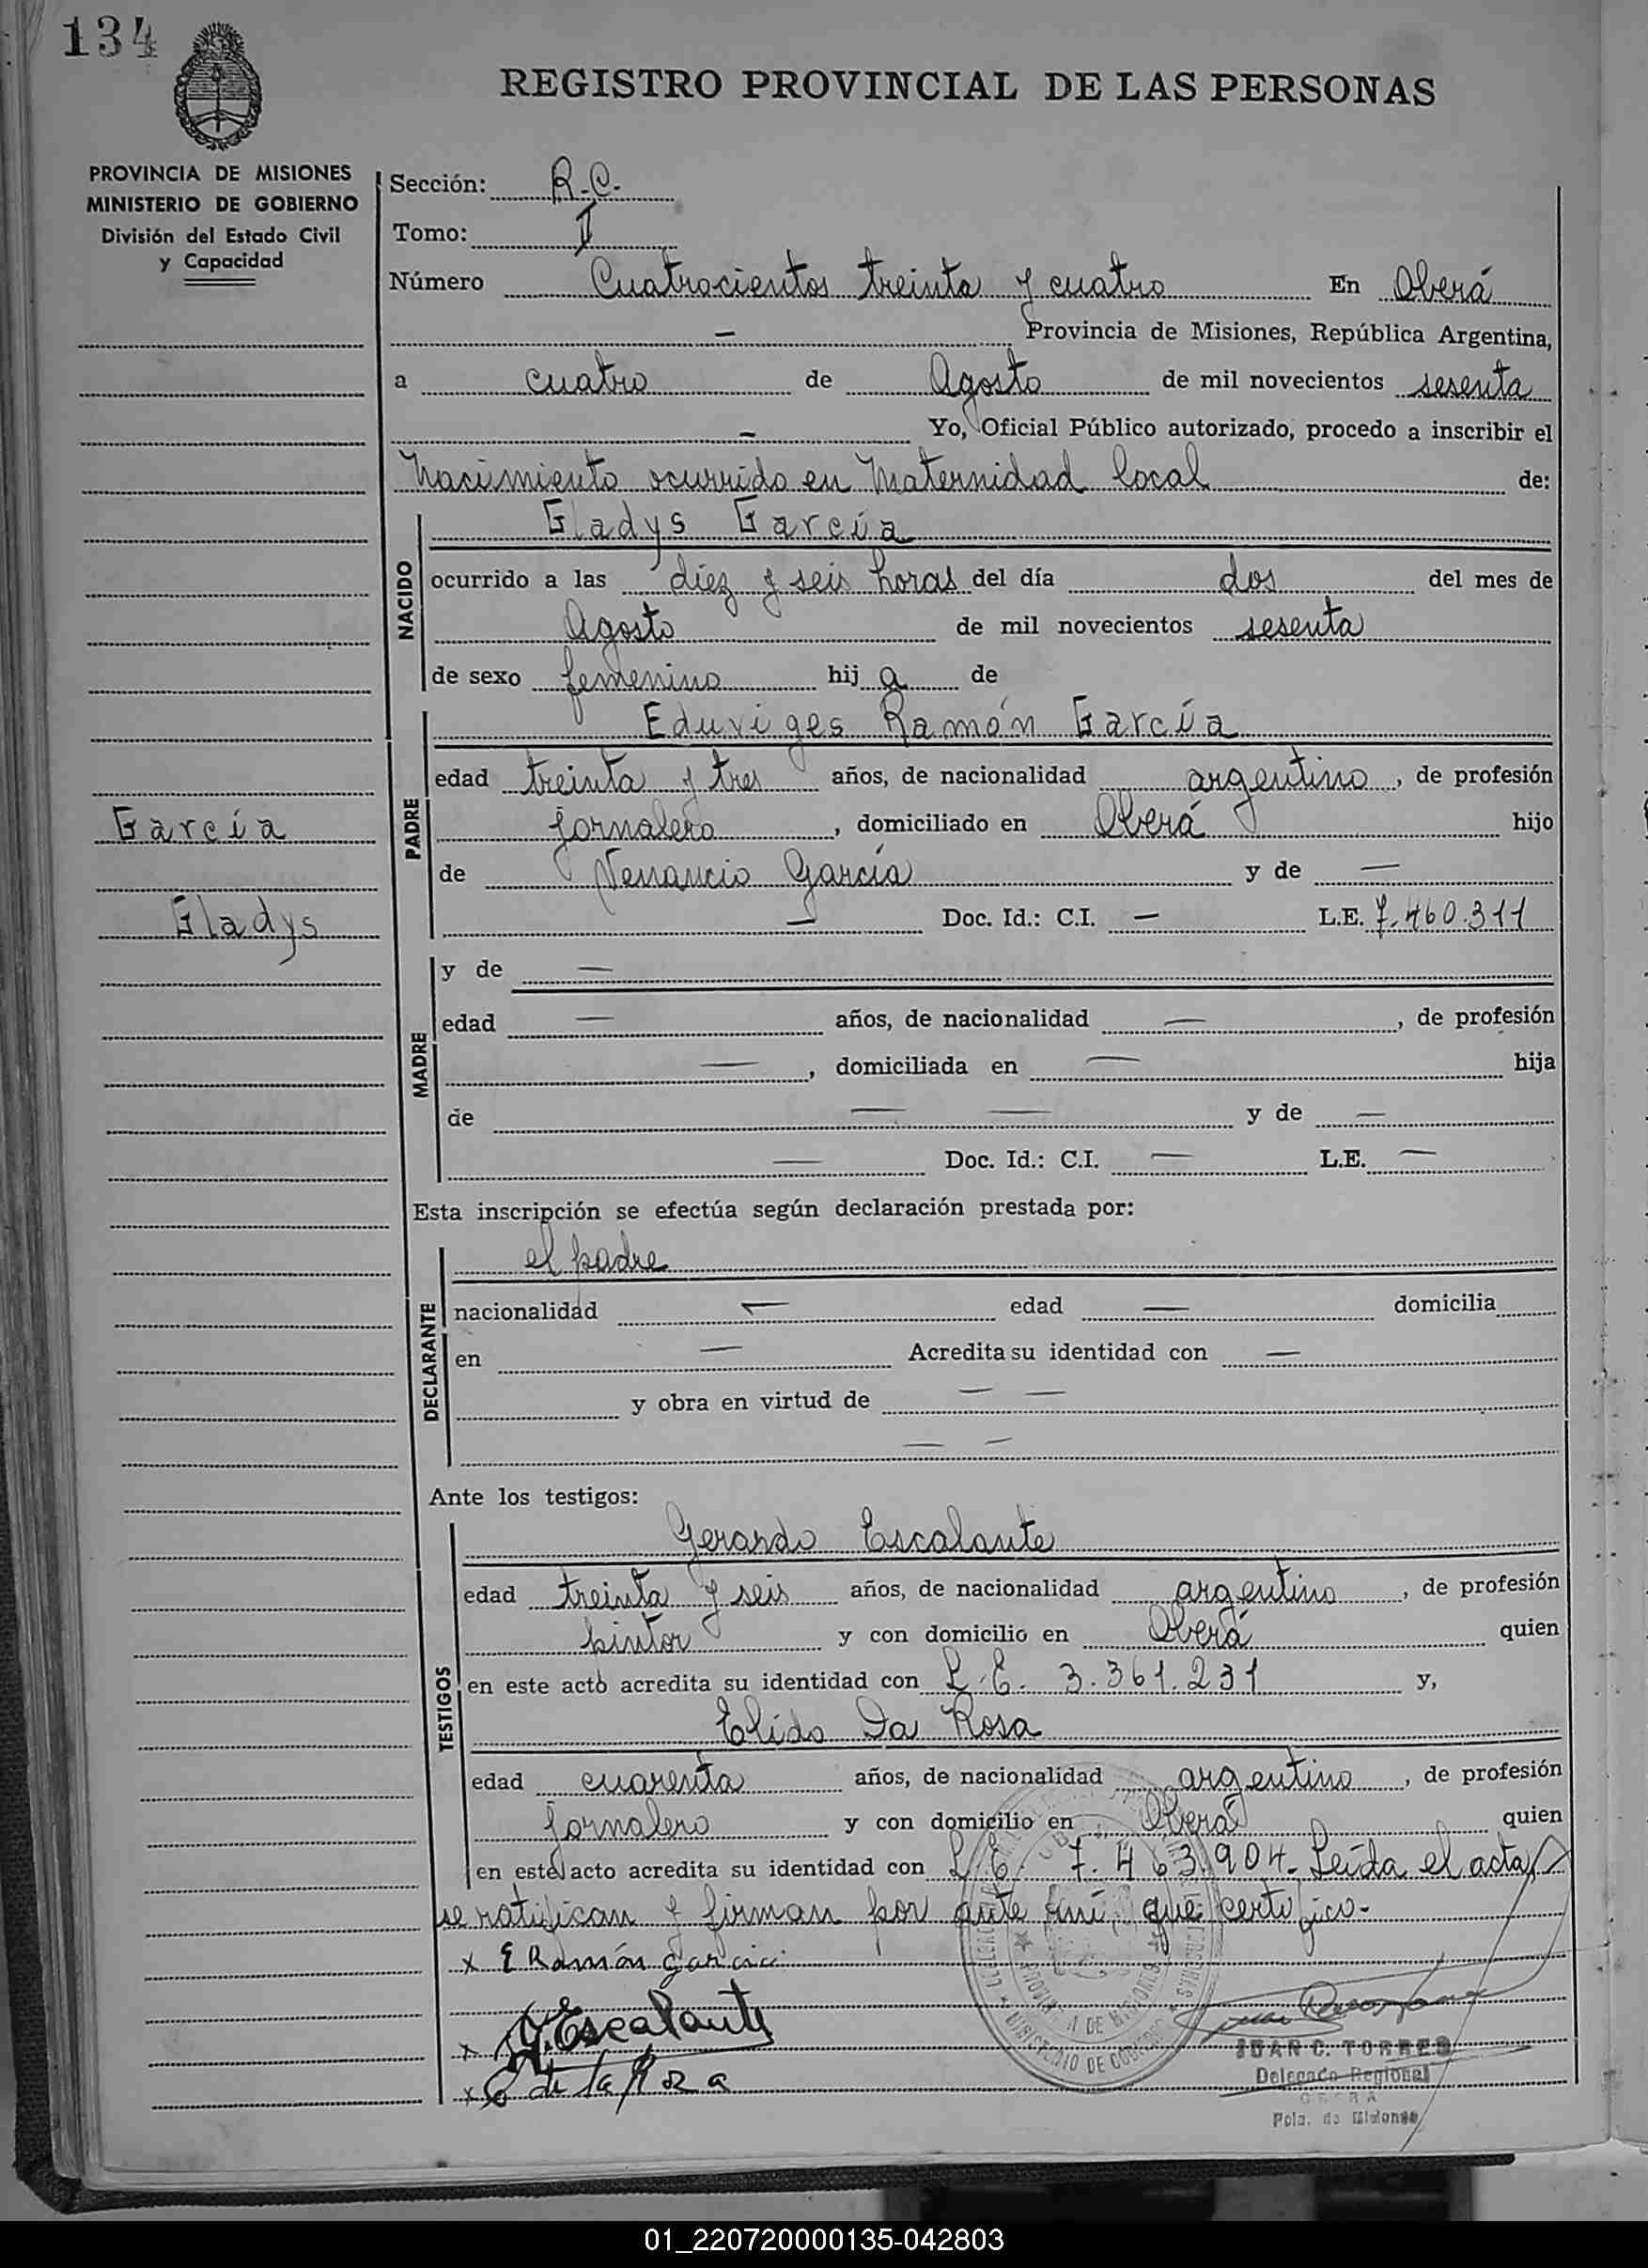 134
REGISTRO PROVINCIAL DE LAS PERSONAS
PROVINCIA DE MISIONES
MINISTERIO DE GOBIERNO
División del Estado Civil
y Capacidad
García
Gladys
Sección: R.C.
Tomo: II
Número Cuatrocientos treinta y cuatro En Oberá
— Provincia de Misiones, República Argentina,
a cuatro de Agosto de mil novecientos sesenta
— Yo, Oficial Público autorizado, procedo a inscribir el
Nacimiento ocurrido en Maternidad local de:
NACIDO
Gladys García
ocurrido a las diez y seis horas del día dos del mes de
Agosto de mil novecientos sesenta
de sexo femenino hij a de
PADRE
Eduviges Ramón García
edad treinta y tres años, de nacionalidad argentino, de profesión
jornalero, domiciliado en Oberá hijo
de Venancio García y de —
— Doc. Id.: C.I. — L.E. 7.460.311
MADRE
y de —
edad — años, de nacionalidad —, de profesión
—, domiciliada en — hija
de — — y de —
— Doc. Id.: C.I. — L.E. —
Esta inscripción se efectúa según declaración prestada por:
DECLARANTE
el padre
nacionalidad — edad — domicilia
en — Acredita su identidad con —
y obra en virtud de — —
— —
Ante los testigos:
TESTIGOS
Gerardo Escalante
edad treinta y seis años, de nacionalidad argentino, de profesión
pintor y con domicilio en Oberá quien
en este acto acredita su identidad con L.E. 3.361.231 y,
Elido Da Rosa
edad cuarenta años, de nacionalidad argentino, de profesión
jornalero y con domicilio en Oberá quien
en este acto acredita su identidad con L.E. 7.463.904.- Leída el acta,
se ratifican y firman por ante mí, que certifico.-
x E Ramón Garcia
x G. Escalante
x E de la Rosa
MINISTERIO DE GOBIERNO
PROVINCIA DE MISIONES
JUAN C. TORRES
Delegado Regional
OBERA
Pcia. de Misiones
01_220720000135-042803